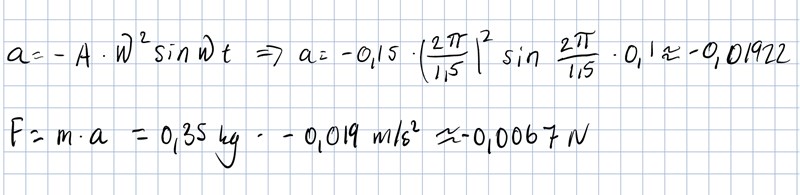 a = - A · W² sin W t ⇒ a = -0,15 · (2π/1,5)² sin 2π/1,5 · 0,1 ≈ -0,01922
F = m · a = 0,35 kg · - 0,019 m/s² ≈ -0,0067 N